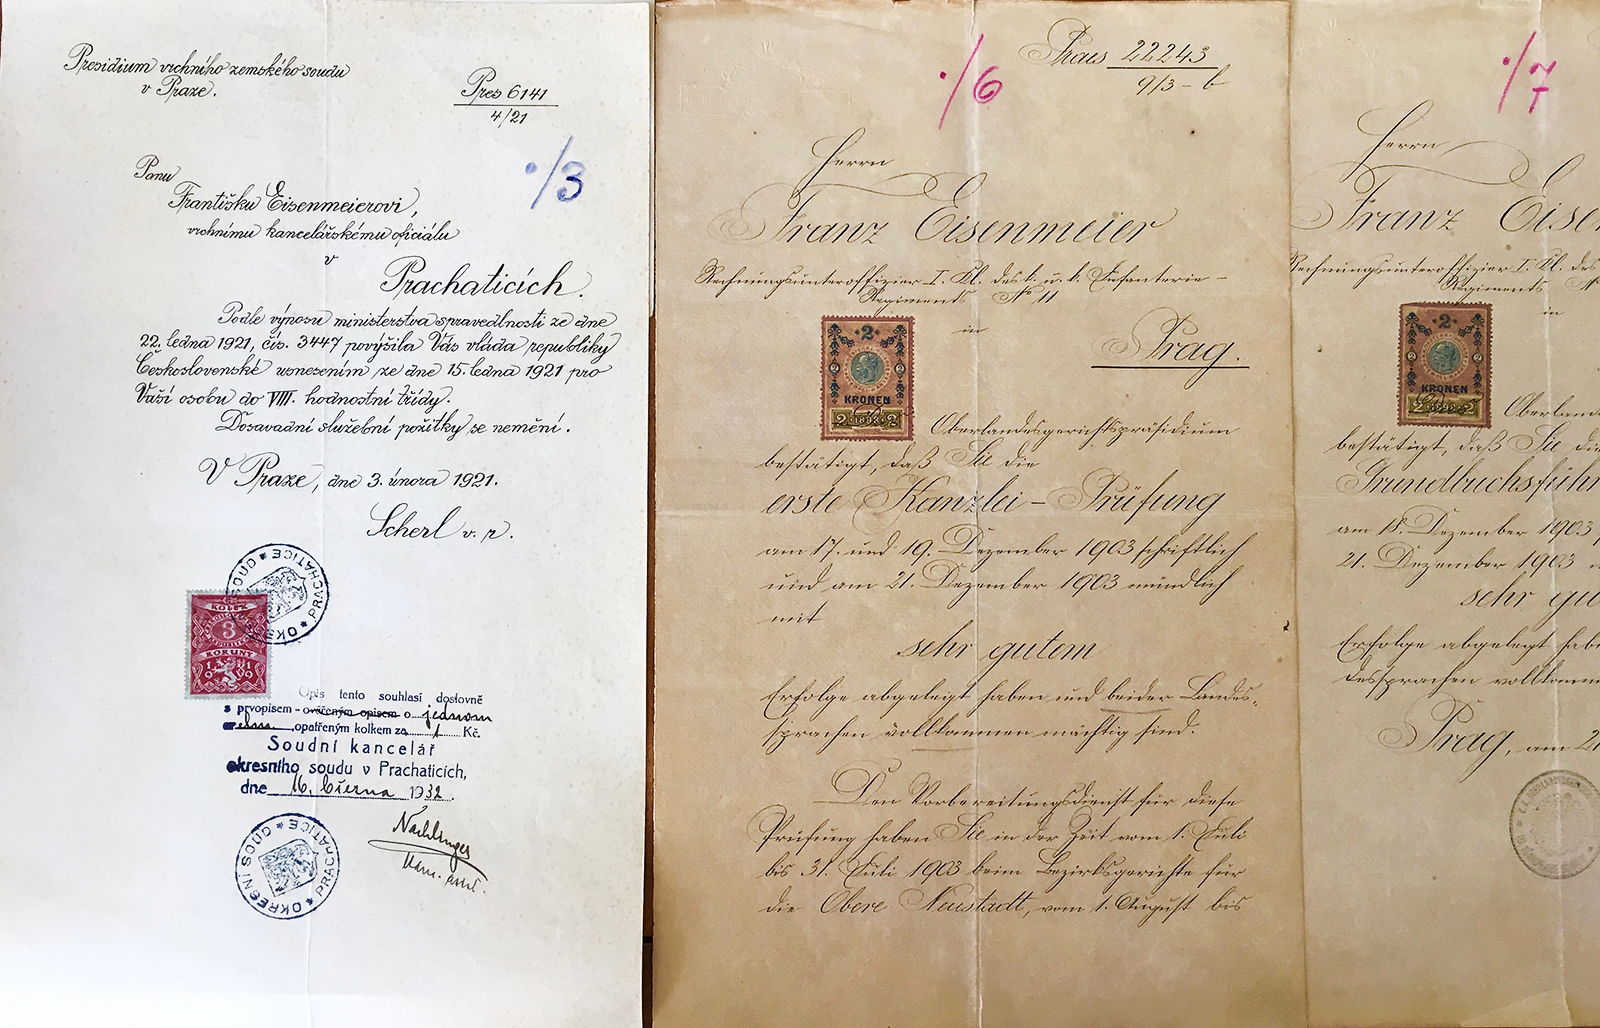 Presidium vrchního zemského soudu
v Praze.
Pres 6141
4/21
·/3
Panu
Františku Eisenmeierovi,
vrchnímu kancelářskému oficiálu
v
Prachaticích.
Podle výnosu ministerstva spravedlnosti ze dne
22. ledna 1921, čís. 3447 povýšila Vás vláda republiky
Československé usnesením ze dne 15. ledna 1921 pro
Vaši osobu do VIII. hodnostní třídy.
Dosavadní služební požitky se nemění.
V Praze, dne 3. února 1921.
Scherl v. r.
OKRESNÍ SOUD PRACHATICE
KOLEK
3
KORUNY
1919
Opis tento souhlasí doslovně
s prvopisem - ověřeným opisem o jednom
opatřeným kolkem za 1 Kč.
Soudní kancelář
okresního soudu v Prachaticích,
dne 16. března 1932.
OKRESNÍ SOUD PRACHATICE
·/6
Praes 22243
9/3 - b
Herrn
Franz Eisenmeier
Rechnungsunteroffizier I. Kl. des k. u. k. Infanterie-
Regiments No 11
in
Prag.
2
KRONEN
2 1898 2
Oberlandesgerichtspräsidium
bestätigt, daß Sie die
erste Kanzlei-Prüfung
am 17. und 19. Dezember 1903 schriftlich
und am 21. Dezember 1903 mündlich
mit
sehr gutem
Erfolge abgelegt haben und beider Landes-
sprachen vollkommen mächtig sind.
Den Vorbereitungsdienst für diese
Prüfung haben Sie in der Zeit vom 1. Juli
bis 31. Juli 1903 beim Bezirksgerichte für
die Obere Neustadt, vom 1. August bis
·/7
Herrn
Franz Eise
Rechnungsunteroffizier I. Kl. des
Regiments
in
2
KRONEN
2 1898 2
Oberland
bestätigt, daß Sie die
Grundbuchsführ
am 18. Dezember 1903
21. Dezember 1903
sehr gu
Erfolge abgelegt hab
dessprachen vollkommen
Prag, am 2